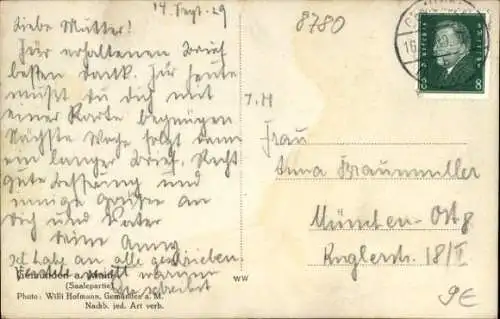 14 Sept. 29
8780
Liebe Mutter!
Für erhaltenen Brief
besten Dank. Für heute
mußt du dich mit
einer Karte begnügen
Nächste Woche folgt dann
ein langer Brief. Recht
gute Besserung und
innige Grüße an
Dich und Vater
Deine Anny
Ich habe an alle geschrieben.
Gemünden a. Main
(Saalepartie)
Photo: Willi Hofmann, Gemünden a. M.
Nachb. jed. Art verb.
WW
Frau
Anna Braunmüller
München-Ost 8
18/I
9€
8 8